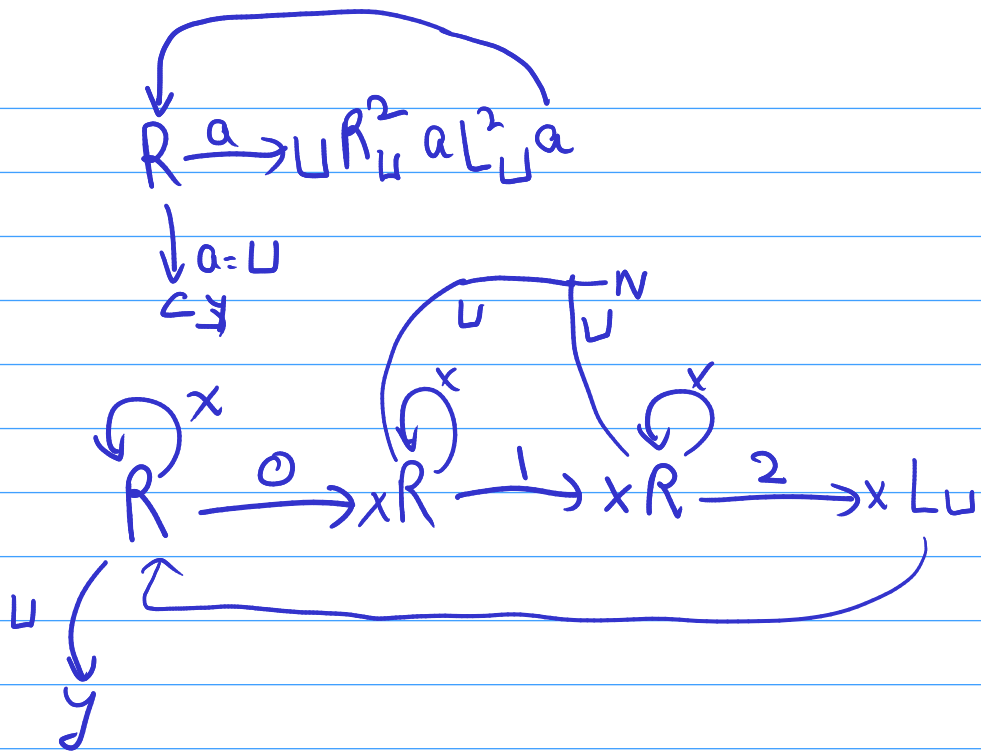 R a ⊔ R²⊔ a L²⊔ a
a = ⊔
y
⊔ ⊔ N
x x x
R 0 x R 1 x R 2 x L⊔
⊔
y